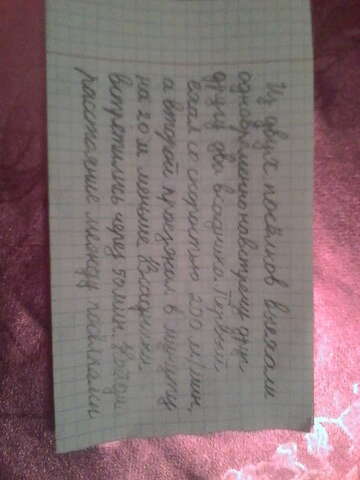 Из двух посёлков выехали
одновременно навстречу друг
другу два всадника. Первый
ехал со скоростью 200 м/мин,
а второй проезжал в минуту
на 20 м меньше. Всадники
встретились через 50 мин. Найди
расстояние между посёлками